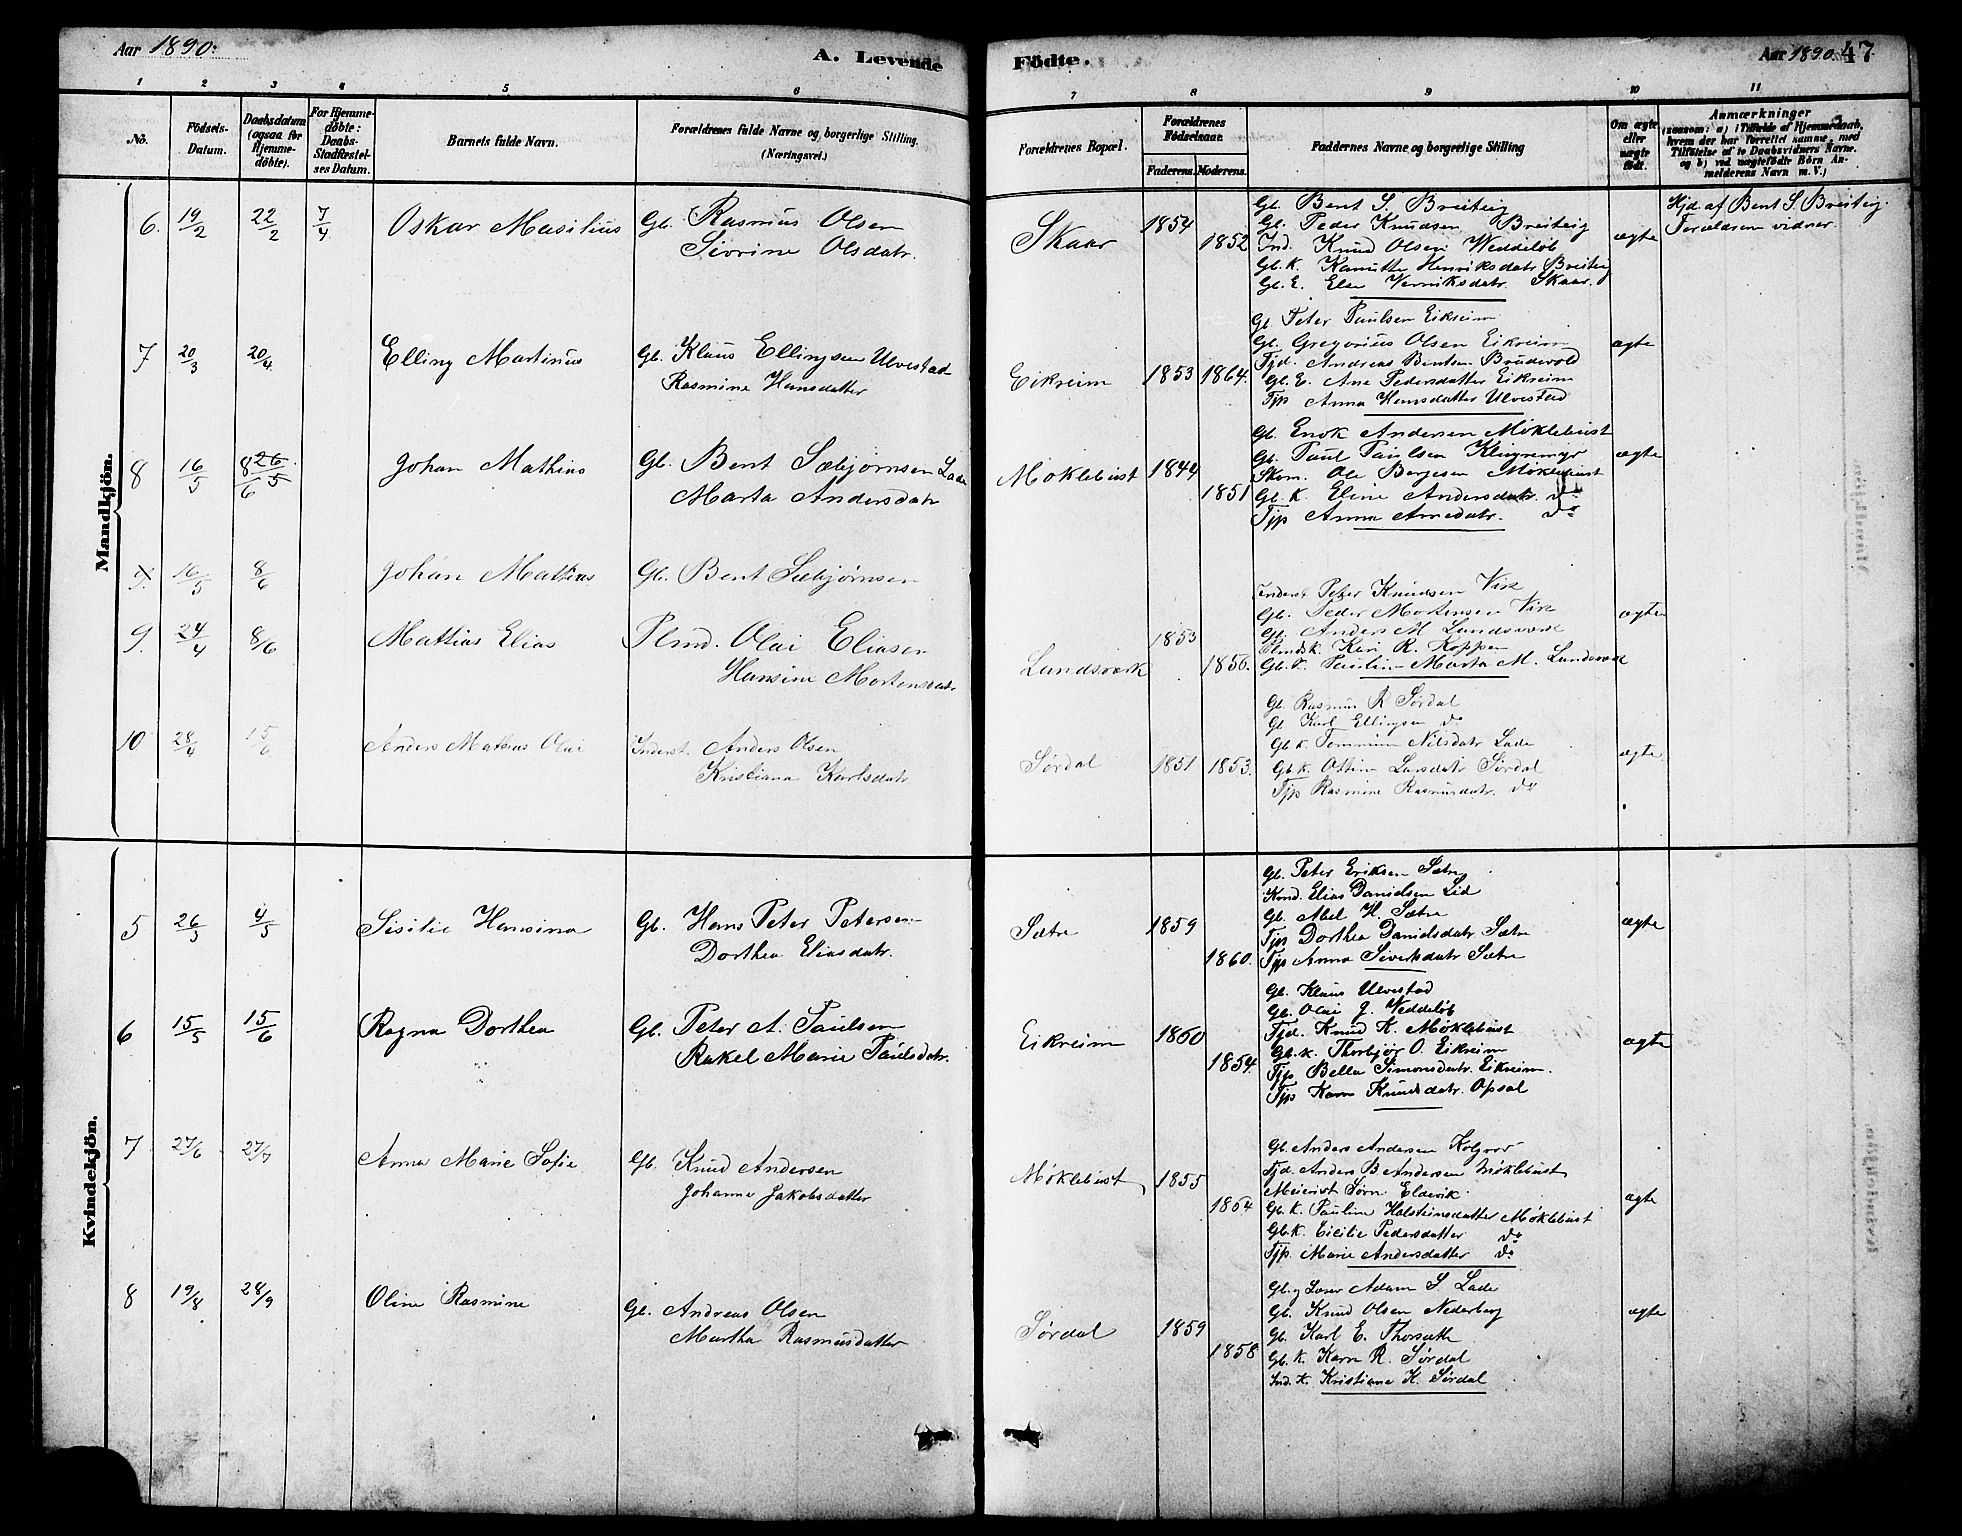 Aar 1890.
A. Levende
Födte.
Aar 1890.
47
1 2 3 4 5 6
7 8 9 10 11
No.
Födsels-
Datum.
Daabsdatum
(ogsaa for
Hjemme-
döbte).
For Hjemme-
döbte:
Daabs-
Stadfæstel-
ses Datum.
Barnets fulde Navn.
Forældrenes fulde Navne og borgerlige Stilling.
(Næringsvei.)
Forældrenes Bopæl.
Forældrenes
Födselsaar.
Faderens. Moderens.
Faddernes Navne og borgerlige Stilling
Om ægte
eller
uægte
födt.
Anmærkninger
(saasom: a) i Tilfælde af Hjemmedaab,
hvem der har forrettet samme, med
Tilföielse af to Daabsvidners Navne.
og b) ved uægtefödte Börn An-
melderens Navn m. V.)
Mandkjön.
6. 19/2 22/2 7/4 Oskar Masilius Gb. Rasmus Olsen
Sivrine Olsdatr.
Skaar 1854 1852
Gb. Bent S. Breiteig
Gb. Peder Knudsen Breiteig
Ind. Knud Olsen Weddeløb
Gb. K. Kanutte Henriksdatr Breiteig
Gb. E. Elen Skaar.
ægte
Hjd. af Bent S. Breiteig.
Forældrene vidner.
7 20/3 20/4 Elling Martinus Gb. Klaus Ellingsen Ulvestad
Rasmine Hansdatter
Eikreim 1853 1864.
Gb. Peter Paulsen Eikreim
Gb. Gregorius Olsen Eikreim
Tjd. Andreas Bentsen Brudevold
Gb. E. Ane Pedersdatter Eikreim
Tjp Anna Hansdatter Ulvestad
ægte
8 16/5 8/6 26/5 Johan Mathias Gb. Bent Sæbjørnsen Lade
Marta Andersdatr
Møklebust 1844 1851
Gb. Enok Andersen Møklebust
Gb. Paul Paulsen Klingremyr
Skom. Ole Borgesen Møklebust
Gb. K. Eline Andersdatr. do
Tjp Anna Arnedatr. do
ægte
9. 16/5 8/6 Johan Mathias Gb. Bent Sæbjørnsen
9. 24/4 8/6 Mathias Elias Plmd. Olai Eliasen
Hansine Mortensdatr
Lundsværk 1853 1856.
Inderst Peter Knudsen Vik
Gb. Peder Mortensen Vik
Gb. Anders M. Lundsværk
Plmdsk. Kari R. Koppen
Marta M. Lundsværk
ægte
10 28/4 15/6 Anders Mathias Olai Inderst. Anders Olsen
Kristiana Karlsdatr
Sørdal 1851 1853.
Gb. Rasmus R Sørdal
Gb. Karl Ellingsen do
Gb. K. Nilsdatr Lade
Gb. K. Larsdatr Sørdal
Tjp Rasmine Rasmusdatr. do
ægte
Kvindekjön.
5 26/3 4/5 Sisilie Hansina Gb. Hans Peter Petersen
Dorthea Eliasdatr.
Sætre 1859 1860.
Gb. Peter Eriksen Sætre
Elias Danielsen Lid
Gb. Abel H. Sætre
Tjp Dorthea Danielsdatr Sætre
Tjp Anna Sivertsdatr Sætre
ægte
6 15/5 15/6 Ragna Dorthea Gb. Peter A. Paulsen
Rakel Marie Paulsdatr.
Eikreim 1860 1854.
Gb. Klaus Ulvestad
Gb. Olai J. Weddeløb
Tjd. Knud K. Møklebust
Gb. K. Thorbjør O. Eikreim
Tjp. Bella Simonsdatr. Eikreim.
Tjp Karn Knudsdatr. Opsal
ægte
7 27/6 27/7 Anna Marie Sofie Gb. Knud Andersen
Johanne Jakobsdatter
Møklebust 1855 1864
Gb. Anders Andersen
Tjd. Anders B Andersen Møklebust
Meierist Sørn Eldevik.
Gb. K. Pauline Halsteinsdatter Møklebust
Gb. K. Cicilie Pedersdatter do
Tjp. Marie Andersdatter do
ægte
8 19/8 28/9 Oline Rasmine Gb. Andreas Olsen
Martha Rasmusdatter
Sørdal 1859 1858
Gb. g Lærer Adam S. Lade
Gb. Knud Olsen Nederberg
Gb. Karl E. Thorsæth
Gb. K. Karn R. Sørdal
Ind. K. Kristiane K. Sørdal
ægte